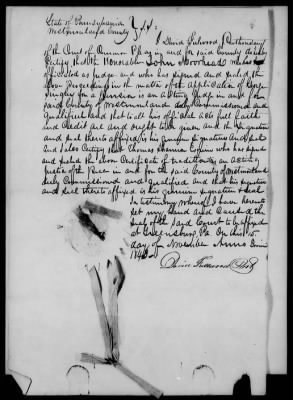 State of Pennsylvania
Westmoreland County } SS.
I David Fullwood, Prothonotary
of the Court of Common Pleas in and for said County do hereby
Certify that the Honorable John Moorhead who has
officiated as judge and who has signed and sealed the
above proceedings in the matter of the Application of
for a Pension is an Judge in and for
said County of Westmoreland duly Commissioned and
Qualified and that to all his official acts full faith
and Credit are and ought to be given and the signature
and seal thereto affixed, is his genuine signature and seal
and I also Certify that Thomas who has signed
and sealed the above Certificate of is an acting
Justice of the Peace in and for the said County of Westmoreland
duly Commissioned and qualified and that his signature
and seal thereto affixed is his genuine signature & seal
In testimony whereof I have hereto
set my hand and Caused the
seal of the said Court to be affixed
at Greensburg Pa. On this 15
day of November Anno Domini
David Fullwood